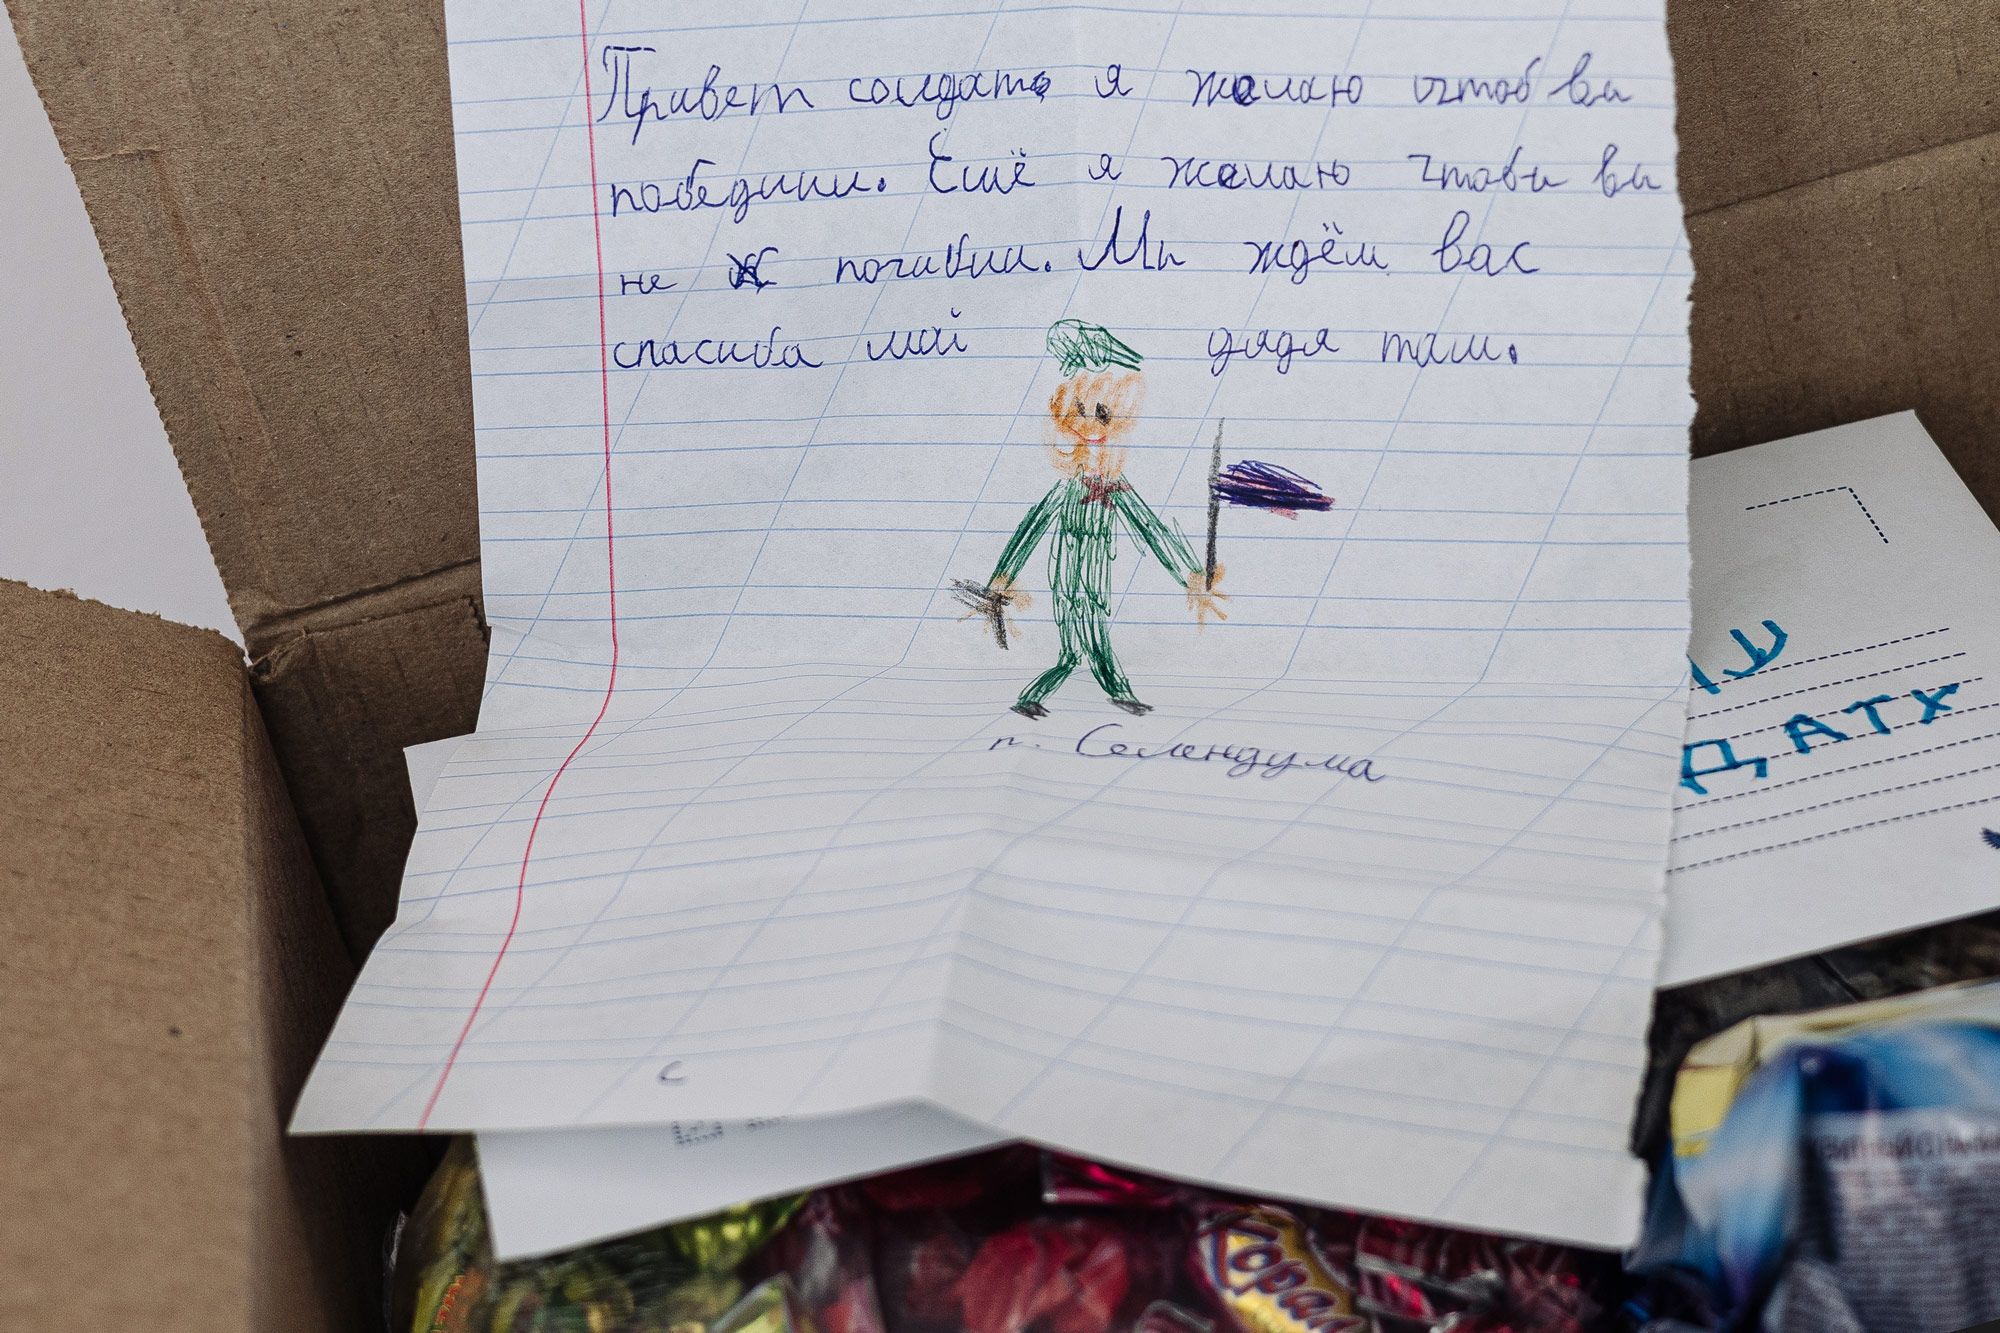 Привет солдать я желаю чтоб вы
победили. Ещё я желаю чтобы вы
не погибли. Мы ждём вас
спасиба мой дядя там.
п. Селендума
ДАТХ
с
Корал